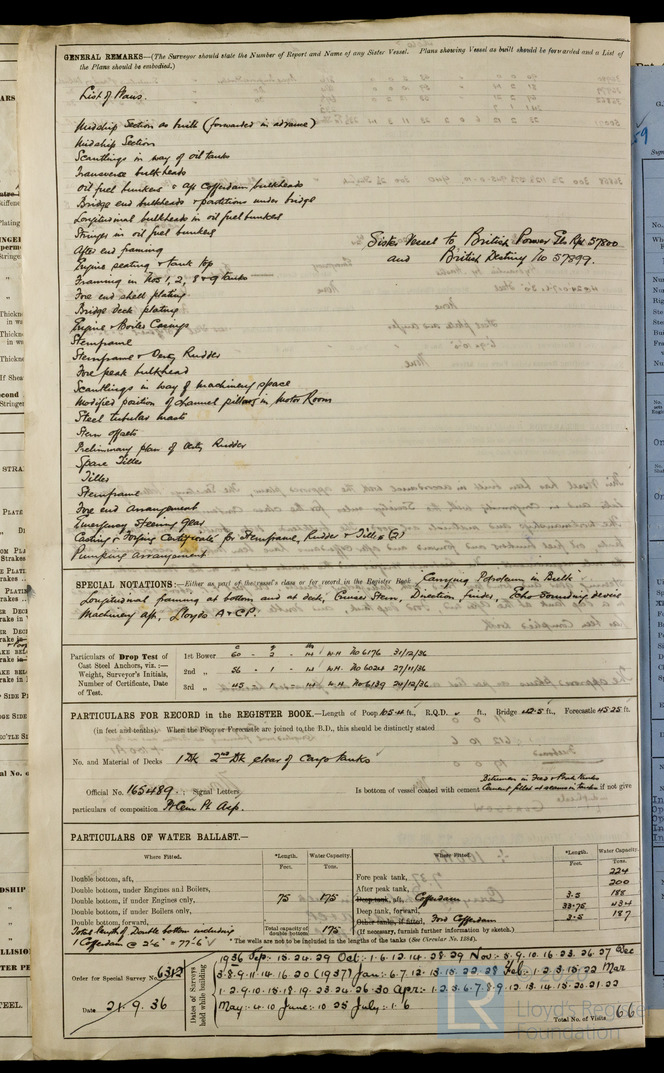 GENERAL REMARKS—(The Surveyor should state the Number of Report and Name of any Sister Vessel. Plans showing Vessel as built should be forwarded and a List of
the Plans should be embodied.)
List of Plans.
Midship Section as built (forwarded in advance)
Midship Section
Scantlings in way of oil tanks
Transverse bulkheads
Oil fuel bunkers & aft Cofferdam bulkheads
Bridge end bulkheads & partitions under bridge
Longitudinal bulkheads in oil fuel bunkers
Stringers in oil fuel bunkers
Sister Vessel to British Power Gls Rpt 57800
After end framing
and British Destiny No 57899.
Engine seating & tank top
Framing in Nos 1, 2, 8 & 9 tanks
Fore end shell plating
Bridge Deck plating
Engine & Boiler Casings
Sternframe
Sternframe & Oertz Rudder
Fore peak bulkhead
Scantlings in way of machinery space
Modified position of channel pillars in Motor Room
Steel tubular masts
Stern offsets
Preliminary plan of Oertz Rudder
Spare Tiller
Tiller
Sternframe
Fore end Arrangement
Emergency Steering Gear
Casting & Forging Certificate for Sternframe, Rudder & Tiller (2)
Pumping arrangement
SPECIAL NOTATIONS:—Either as part of the vessel's class or for record in the Register Book "Carrying Petroleum in Bulk"
Longitudinal framing at bottom and at deck, Cruiser Stern, Direction finder, Echo Sounding device
Machinery aft, Lloyds A & CP.
Particulars of Drop Test of
Cast Steel Anchors, viz.:—
Weight, Surveyor's Initials,
Number of Certificate, Date
of Test.
1st Bower 60 - 2 - 14 W.H. No 6176 31/12/36
2nd „ 56 - 1 - 14 W.H. No 6024 27/11/36
3rd „ 45 - 1 - 14 W.H. No 6139 24/12/36
PARTICULARS FOR RECORD in the REGISTER BOOK.—Length of Poop 105.4 ft., R.Q.D. ft., Bridge 42.5 ft., Forecastle 45.25 ft.
(in feet and tenths). When the Poop or Forecastle are joined to the B.D., this should be distinctly stated
No. and Material of Decks 1 Dk 2nd Dk clear of Cargo tanks
Official No. 165489.; Signal Letters
Is bottom of vessel coated with cement Bitumen in Feed & Peak tanks Cement fillet at seams in tanks if not give
particulars of composition Pt Cem Pt Asp.
PARTICULARS OF WATER BALLAST.—
Where Fitted. *Length. Water Capacity. Where Fitted. *Length. Water Capacity.
Feet. Tons. Feet. Tons.
Double bottom, aft, Fore peak tank, 224
Double bottom, under Engines and Boilers, After peak tank, 200
Double bottom, if under Engines only, 75 175 Deep tank, aft, Cofferdam 3.5 188
Double bottom, if under Boilers only, Deep tank, forward, 33.75 434
Double bottom, forward, Other tanks, if fitted, Ford Cofferdam 3.5 187
Total length of Double bottom including
1 Cofferdam @ 2'6" = 77'6"
Total capacity of double bottom 175
(If necessary, furnish further information by sketch.)
* The wells are not to be included in the lengths of the tanks (See Circular No. 1284).
Order for Special Survey No. 6312
Date 21.9.36
Dates of Surveys held while building
1936 Sep:- 15. 24. 29 Oct:- 1. 6. 12. 14. 28. 29 Nov:- 5. 9. 10. 16. 23. 26. 27 Dec
3. 8. 9. 11. 14. 16. 20 (1937) Jan:- 6. 7. 12. 13. 15. 22. 28 Feb:- 1. 2. 3. 15. 22 Mar
1. 2. 9. 10. 15. 18. 19. 23. 24. 26. 30 Apr:- 1. 2. 5. 6. 7. 8. 9. 12. 13. 14. 15. 20. 21. 22
May:- 4. 10 June:- 10 25 July:- 1. 6
Total No. of Visits 66
Lloyd's Register
Foundation